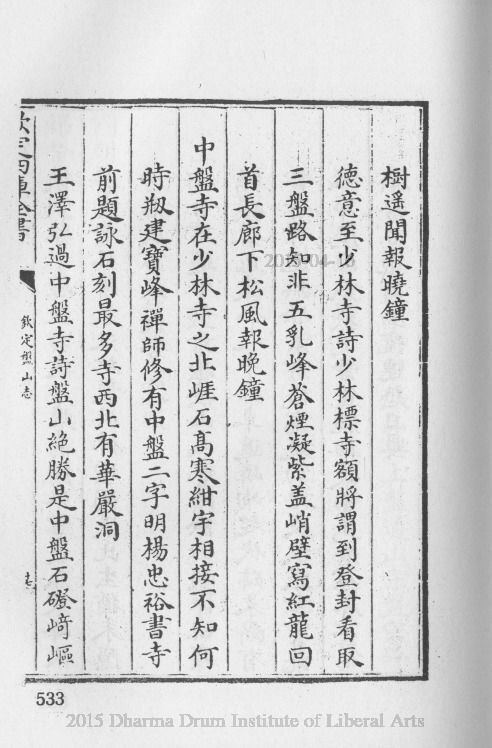 樹遥聞報曉鐘
德意至少林寺詩少林標寺額將謂到登封看取
三盤路知非五乳峰蒼煙凝紫蓋峭壁寫紅龍回
首長廊下松風報晚鐘
中盤寺在少林寺之北崖石髙寒紺宇相接不知何
時剙建寶峰禪師修有中盤二字明楊忠裕書寺
前題詠石刻最多寺西北有華嚴洞
王澤弘過中盤寺詩盤山絶勝是中盤石磴﨑嶇
欽定四庫全書
欽定盤山志
533
2015 Dharma Drum Institute of Liberal Arts